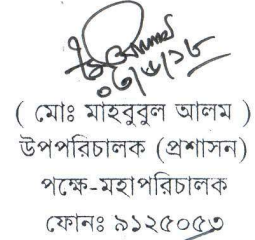 ০৬/৮/১৮
( মোঃ মাহবুবুল আলম )
উপপরিচালক (প্রশাসন)
পক্ষে-মহাপরিচালক
ফোনঃ ৯১২৫০৫৩